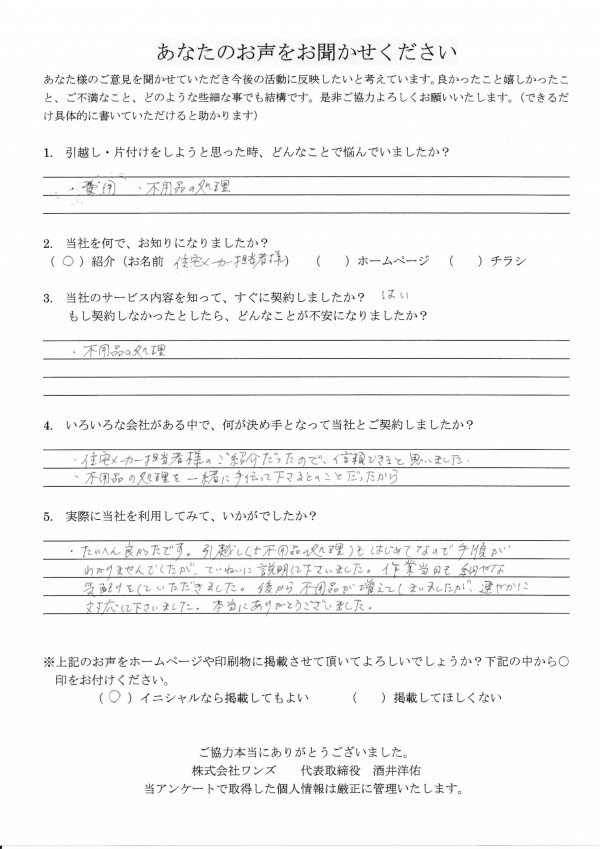 あなたのお声をお聞かせください
あなた様のご意見を聞かせていただき今後の活動に反映したいと考えています。良かったこと嬉しかったこ
と、ご不満なこと、どのような些細な事でも結構です。是非ご協力よろしくお願いいたします。（できるだ
け具体的に書いていただけると助かります）
1. 引越し・片付けをしようと思った時、どんなことで悩んでいましたか？
・費用 ・不用品の処理
2. 当社を何で、お知りになりましたか？
（ ○ ）紹介（お名前 住宅メーカー担当者様） （ ）ホームページ （ ）チラシ
3. 当社のサービス内容を知って、すぐに契約しましたか？ はい
もし契約しなかったとしたら、どんなことが不安になりましたか？
・不用品の処理
4. いろいろな会社がある中で、何が決め手となって当社とご契約しましたか？
・住宅メーカー担当者様のご紹介だったので、信頼できると思いました。
・不用品の処理を一緒に手伝って下さるとのことだったから
5. 実際に当社を利用してみて、いかがでしたか？
・たいへん良かったです。引越し(+不用品の処理)もはじめてなので手順が
わかりませんでしたが、ていねいに説明して下さいました。作業当日も細やかな
気配りをしていただきました。後から不用品が増えてしまいましたが、速やかに
対応して下さいました。本当にありがとうございました。
※上記のお声をホームページや印刷物に掲載させて頂いてよろしいでしょうか？下記の中から○
印をお付けください。
（ ○ ）イニシャルなら掲載してもよい （ ）掲載してほしくない
ご協力本当にありがとうございました。
株式会社ワンズ 代表取締役 酒井洋佑
当アンケートで取得した個人情報は厳正に管理いたします。